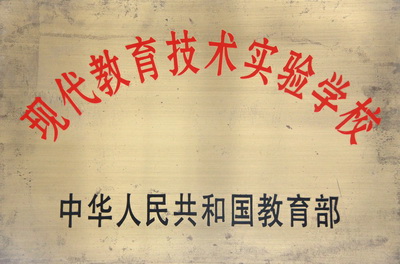 现代教育技术实验学校
中华人民共和国教育部